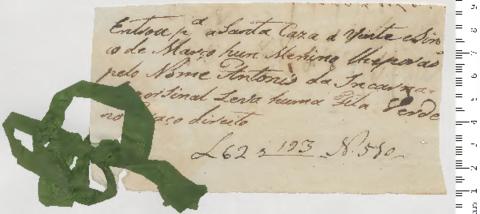 Entrou pª a Santa Caza a Vinte e Sin
co de Março hun Menino lhe poraõ
pelo Nome Antonio da Incarna
por Sinal Leva huma Fita Verde
no Braço direito
L 62 a 193 N. 580